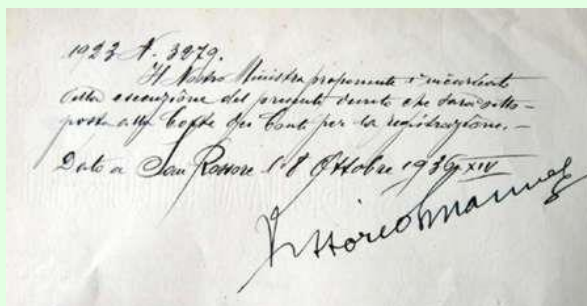 1923 N. 3279.
Il Nostro Ministro proponente è incaricato
della esecuzione del presente decreto che sarà sotto-
posto alla Corte dei Conti per la registrazione.-
Dato a San Rossore li 8 Ottobre 1936 XIV
Vittorio Emanuele